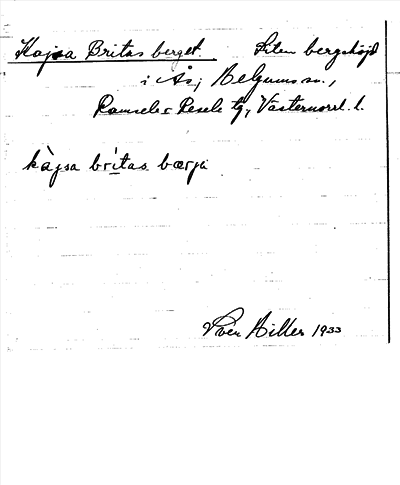 Kajsa Britas berget. Liten bergshöjd
i Ås, Helgums sn.,
Ramsele o Resele tg, Västernorrl. l.
kàjsa brítas bærjä
Sven Hiller 1933